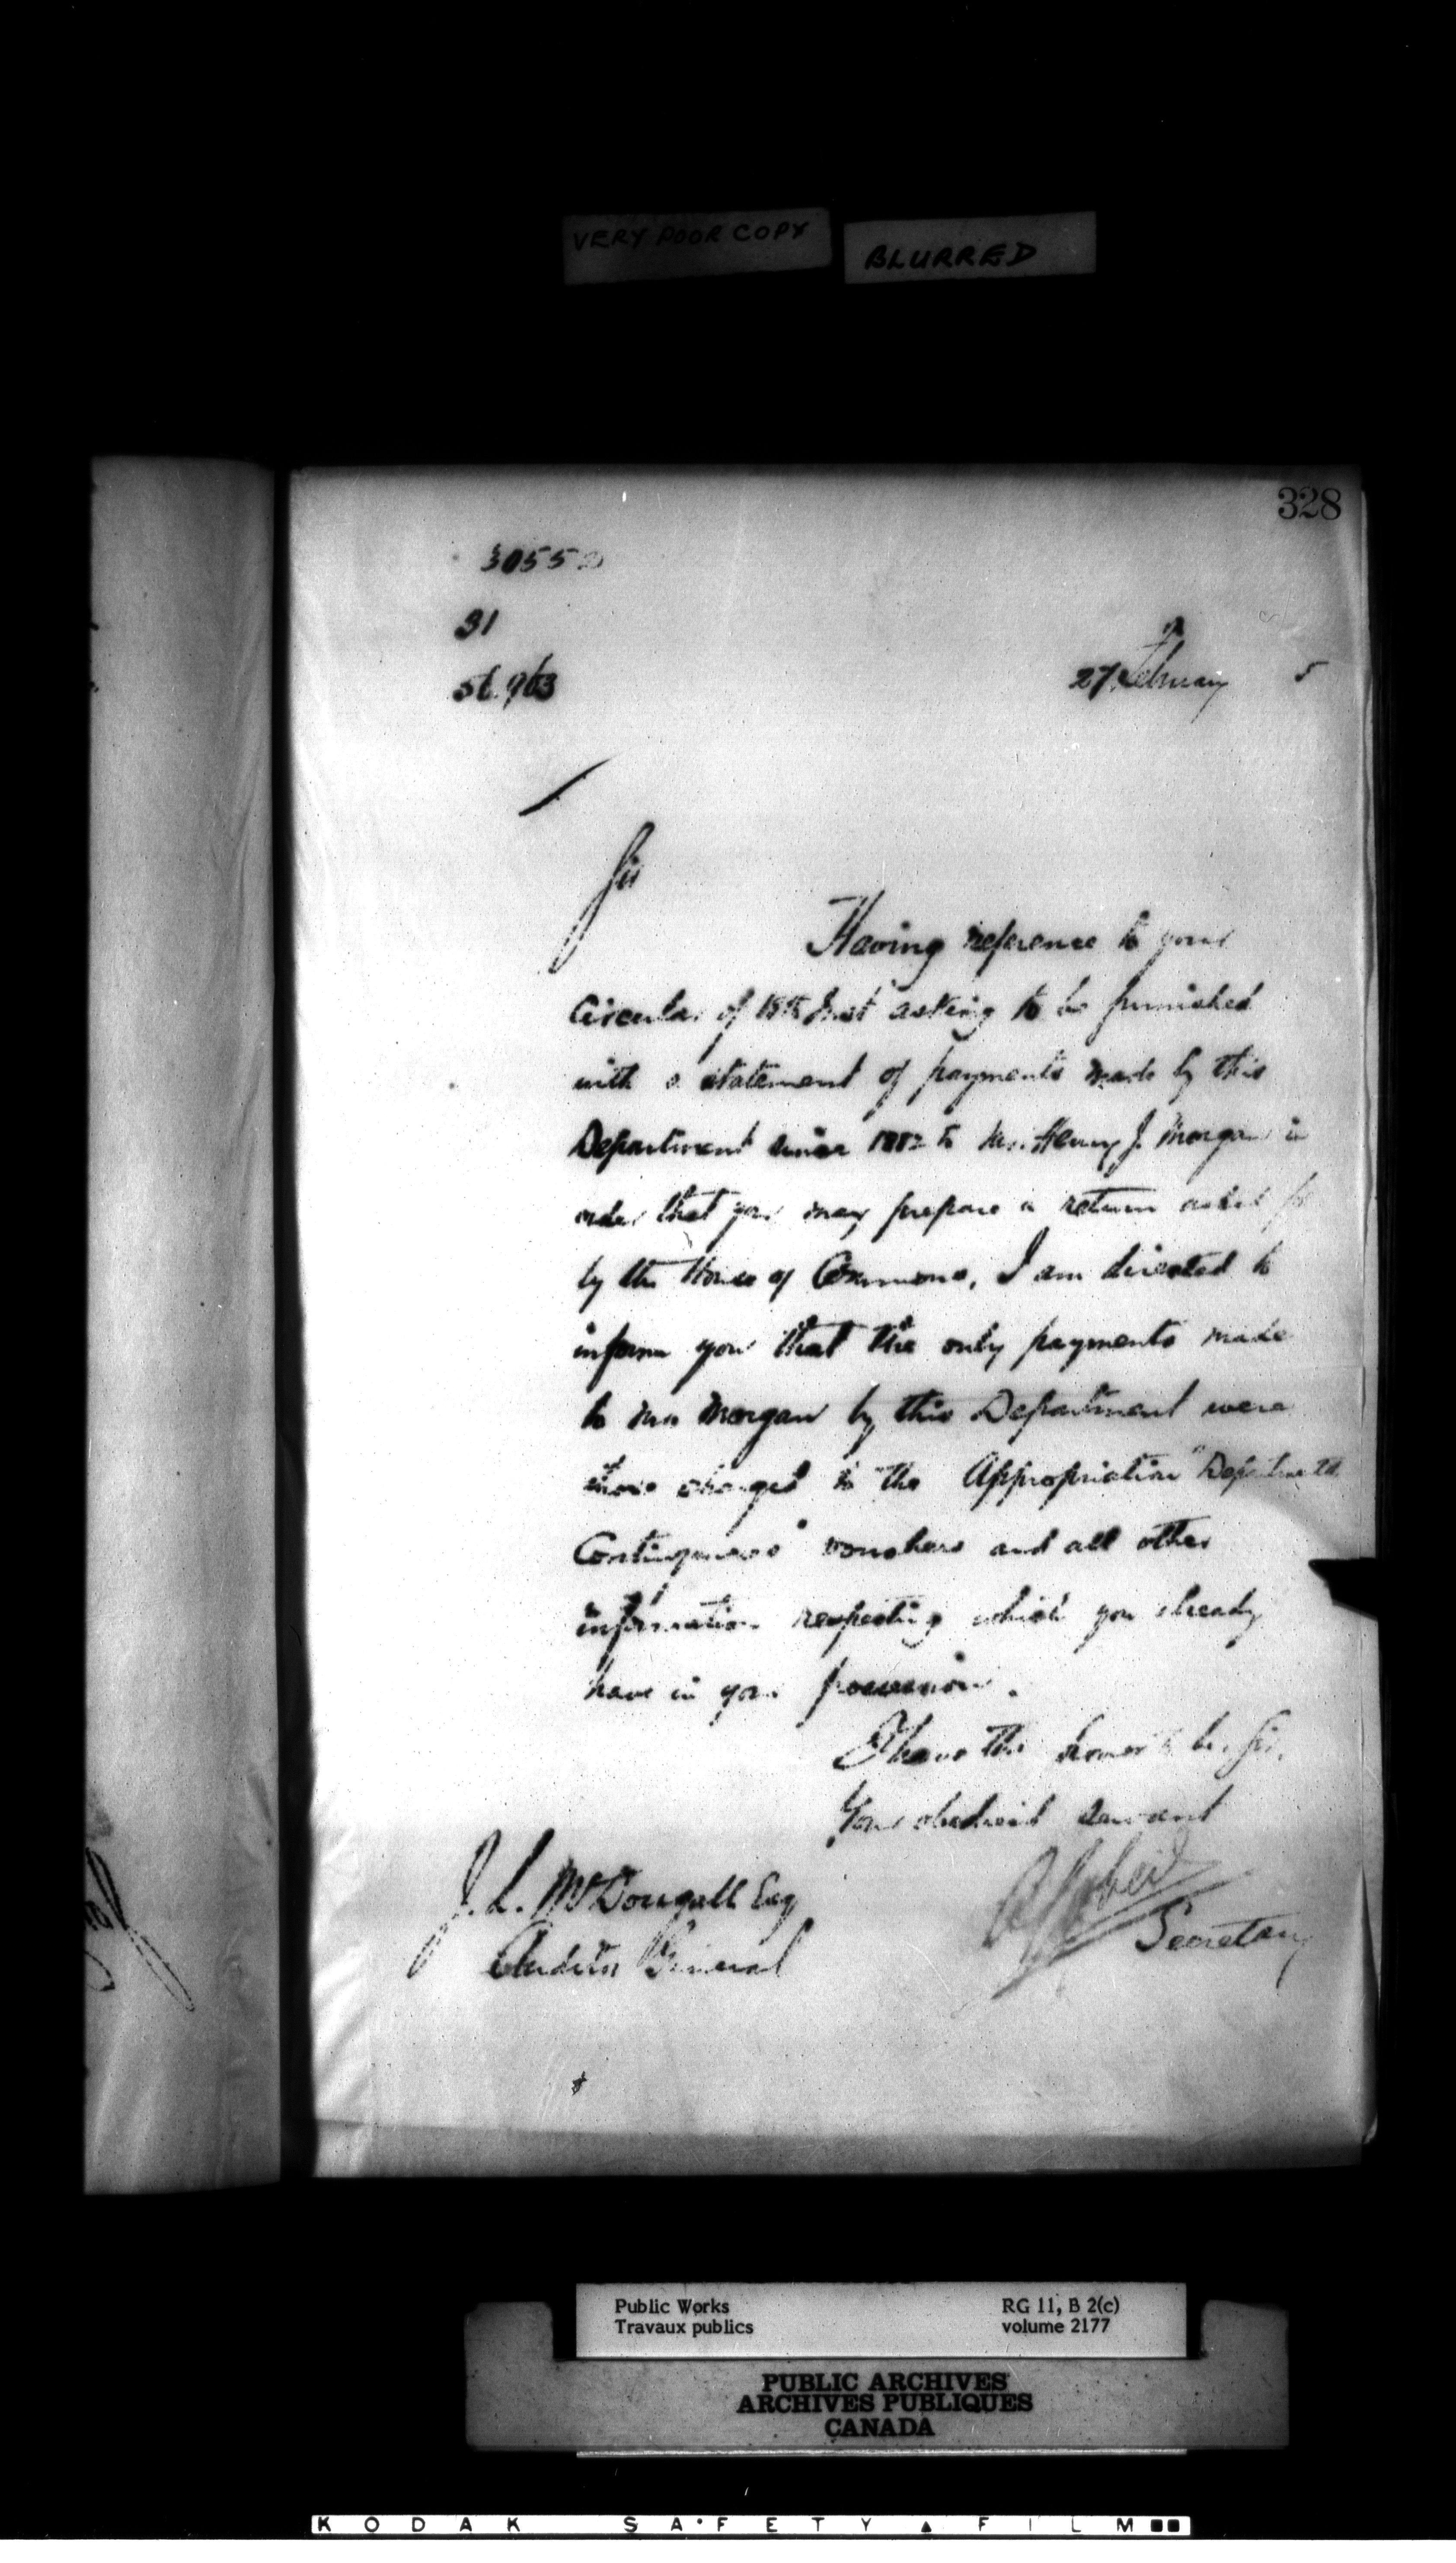 VERY POOR COPY
BLURRED
328
3055
31
27 February 5
Sir
Having reference to your
Circular of 18th Inst asking to be furnished
with a statement of payments made by this
Department since 1882 to Mr. Henry J. Morgan in
order that you may prepare a return asked for
by the House of Commons, I am directed to
inform you that the only payments made
to Mr Morgan by this Department were
those charged to the Appropriation "Departmental
Contingencies" vouchers and all other
information respecting which you already
have in your possession.
I have the honor to be, Sir,
Your obedient servant
J. L. McDougall Esq
Auditor General
Secretary
Public Works
Travaux publics
RG 11, B 2(c)
volume 2177
PUBLIC ARCHIVES
ARCHIVES PUBLIQUES
CANADA
KODAK SAFETY FILM